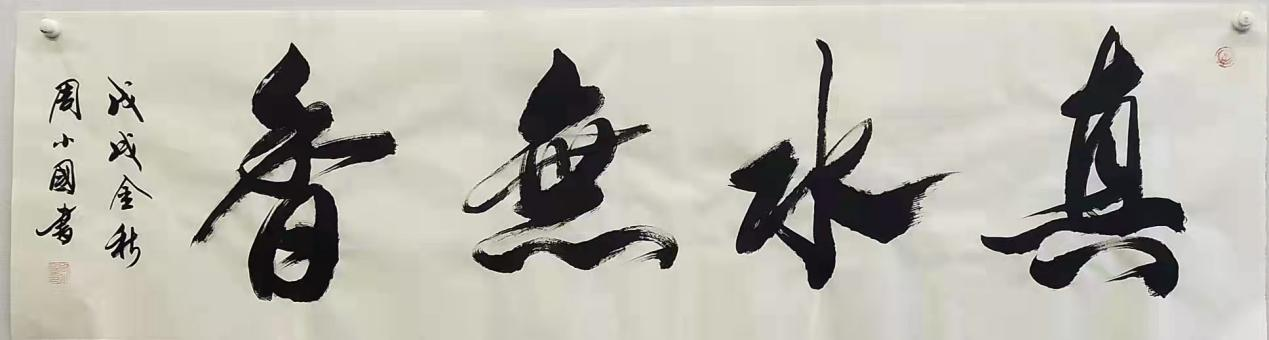 真水無香
戊戌金秋
周小國書